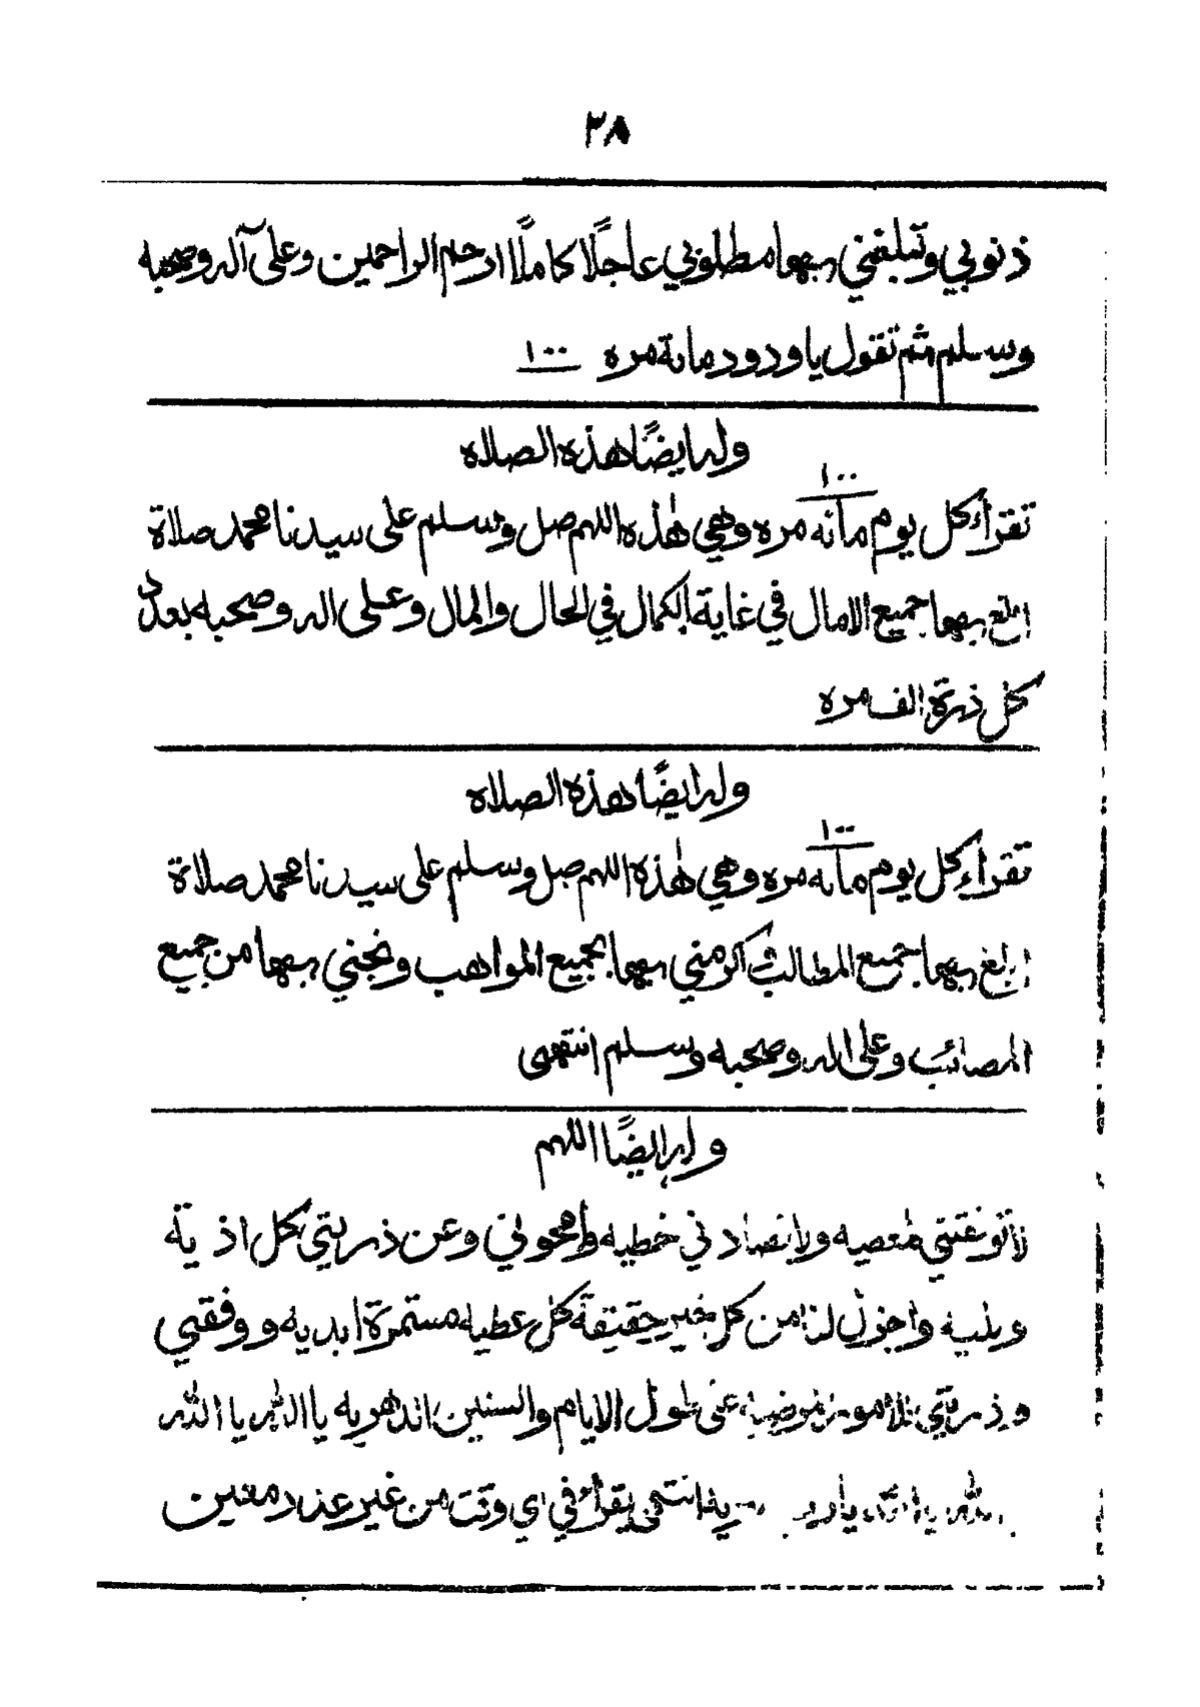 ٣٨
ذنوبي وتبلغني بها مطلوبي عاجلًا كاملًا ارحم الراحمين وعلى آله وصحبه
وسلم ثم تقول يا ودود مائة مره ١٠٠
وله ايضًا هذه الصلاه
١٠٠
تقراء كل يوم مائه مره وهي هٰذه اللهم صل وسلم على سيدنا محمد صلاة
ابلغ بها جميع الامال في غاية الكمال في الحال والمال وعلى اله وصحبه بعدد
كل ذرة الف مره
وله ايضًا هذه الصلاه
١٠٠
تقراء كل يوم مائه مره وهي هٰذه اللهم صل وسلم على سيدنا محمد صلاة
ابلغ بها جميع المطالب واكرمني بها بجميع المواهب ونجني بها من جميع
المصائب وعلى اله وصحبه وسلم انتهى
وله ايضًا اللهم
خطيه وامحو عني وعن ذريتي كل اذية
وبليه واجزل لنا من كل خير حقيقة كل عطيه مستمرة ابديه ووفقني
وذريتي على طول الايام والسنين يا الله يا الله
يا الله انتهى يقراء في اي وقت من غير عدد معين